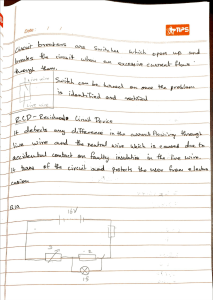 Date:
TIPS
Circuit breakers are Switches which open up and
breaks the circuit when an excessive current flows
through them.
Switch can be turned on once the problem
is identified and rectified
R.C.D - Residual Circuit Device
It detects any difference in the current flowing through
live wire and the neutral wire which is caused due to
accidental contact or faulty insulation in the live wire.
It turns off the circuit and protects the user from electro
cusion